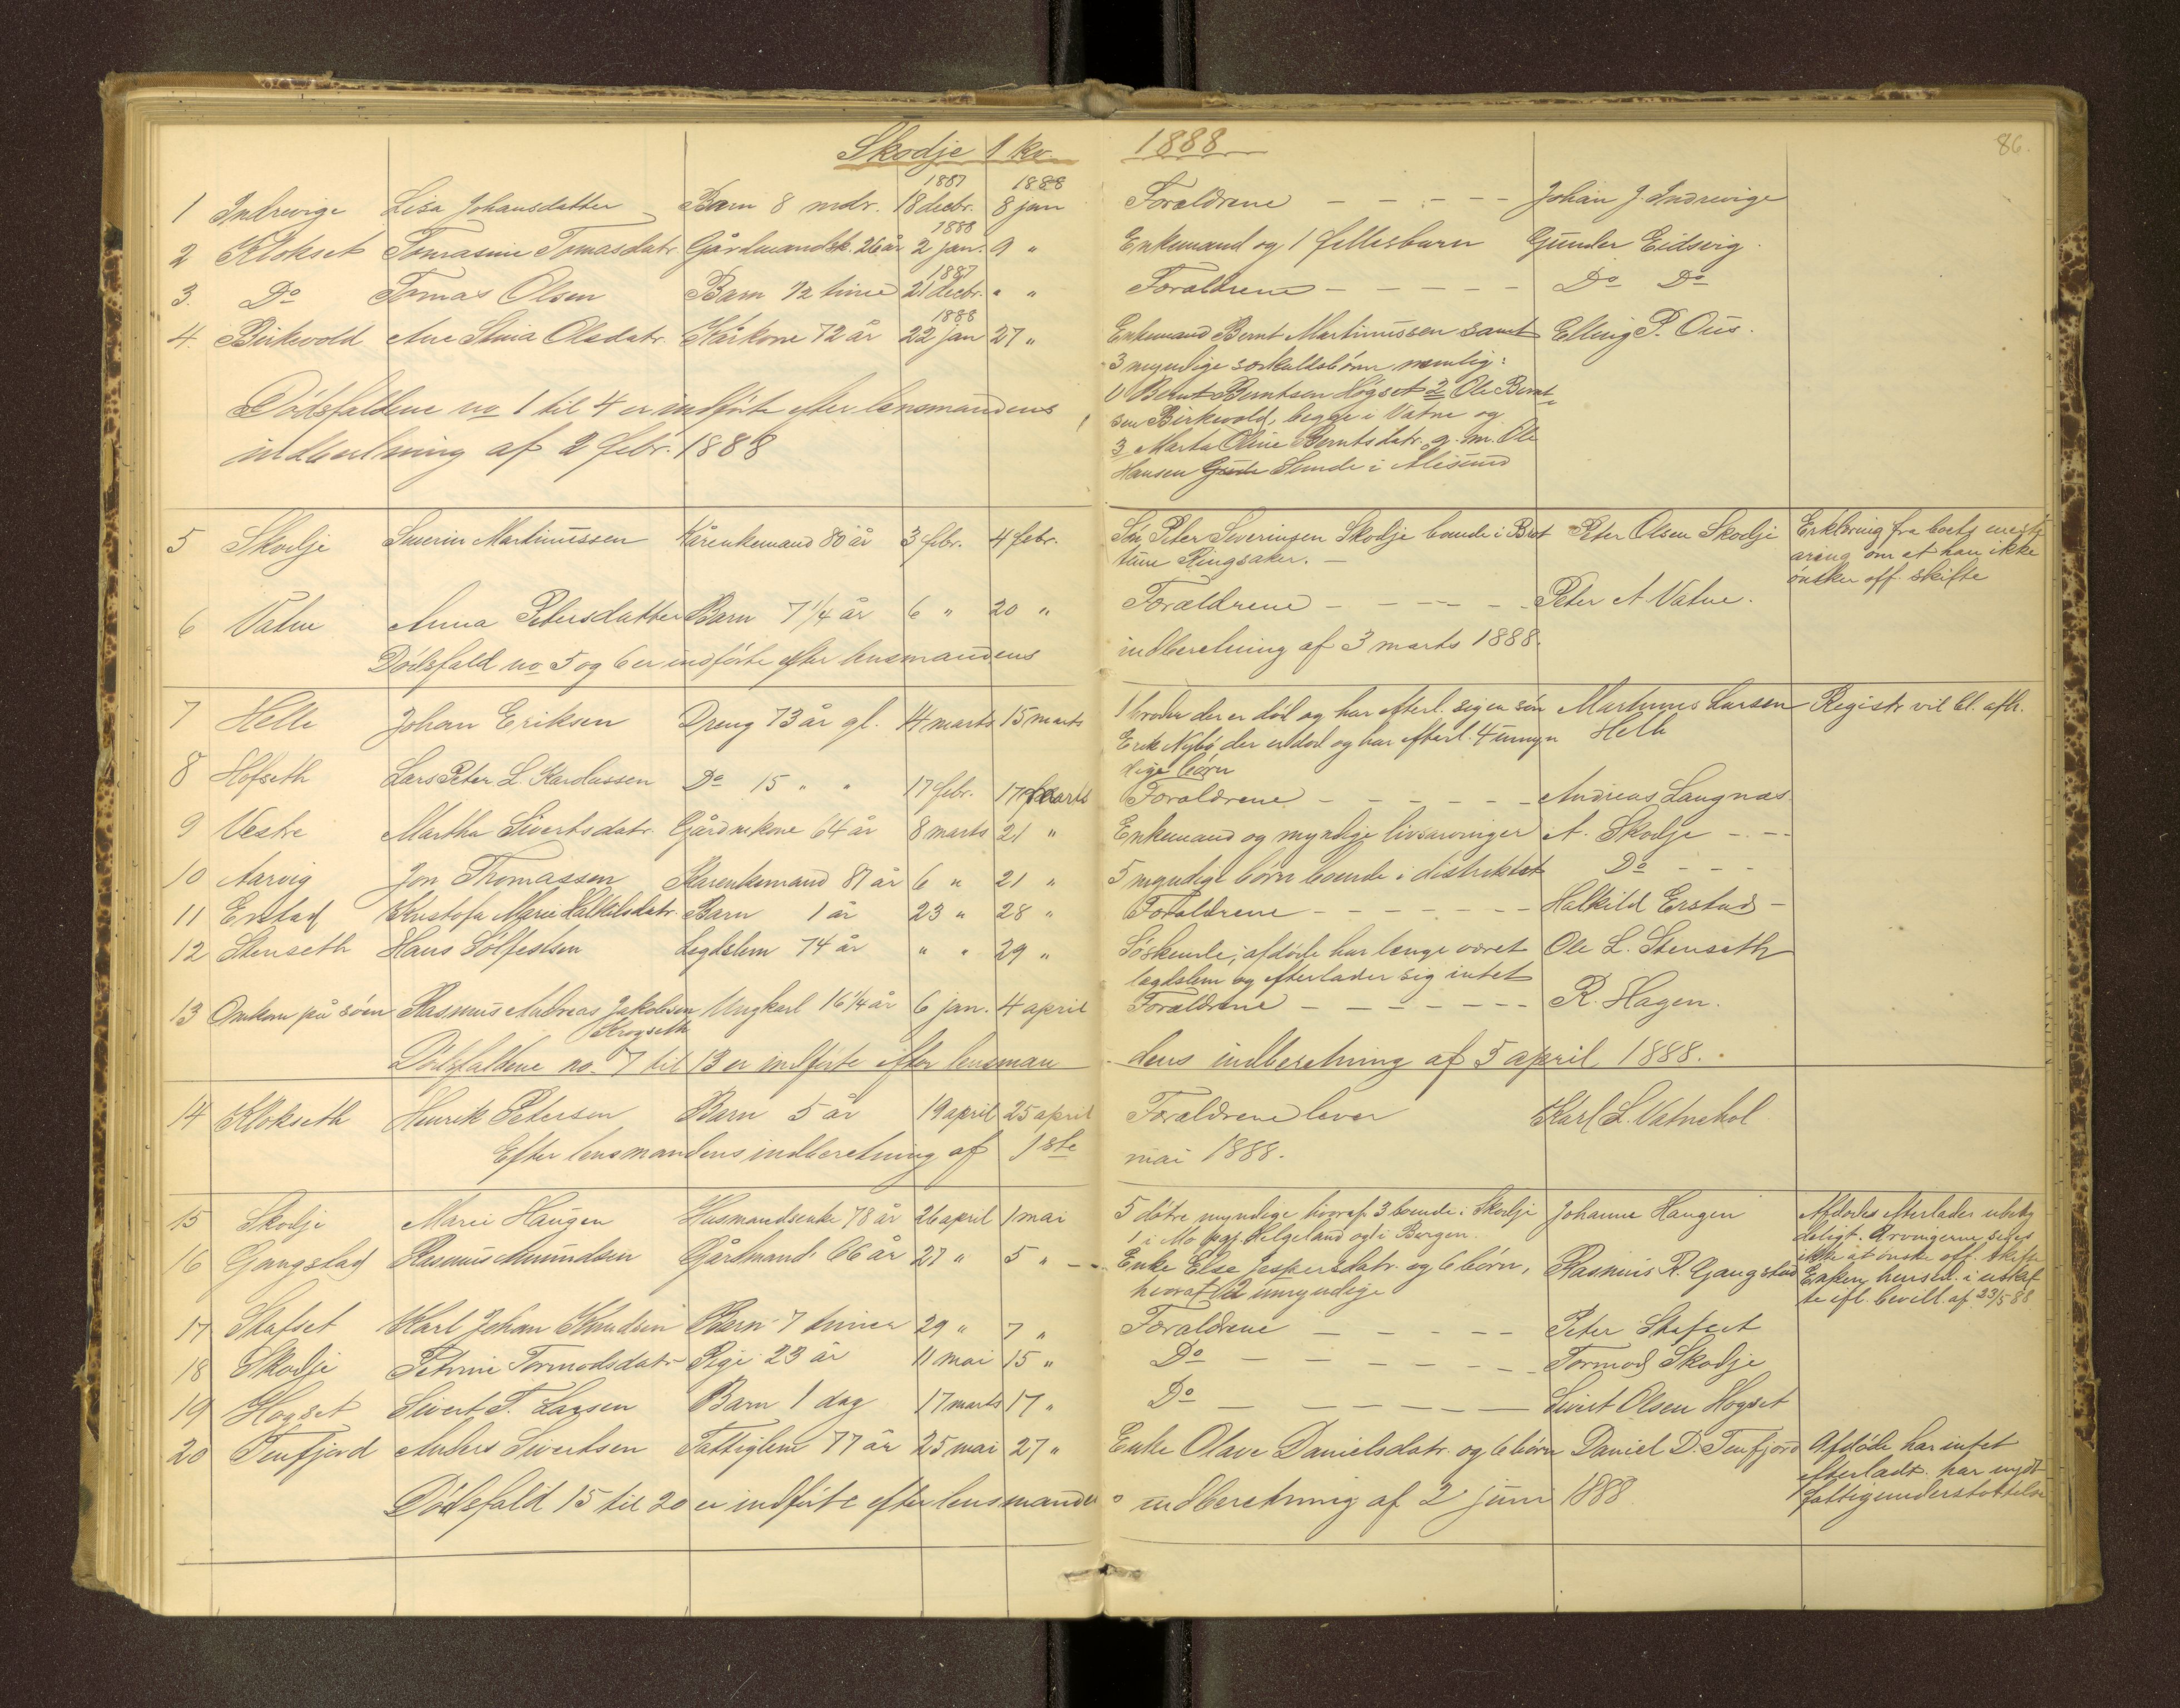 Skodje 1 kv. 1888
86.
1887 1888
1 Indrevige Lisa Johansdatter Barn 8 mdr. 18 decbr. 8 jan Foraldrene - - - - - Johan J. Indrevige
1888
2 Klokset Tomasine Tomasdatr. Gårdmandsk. 26 år 2 jan. 9 " Enkemand og 1 fellesbarn Gunder Eidsvig.
1887
3. Do Tomas Olsen Barn 1/2 time 21 decbr. " " Foraldrene - - - - - Do Do
1888
4. Birkevold Ane Stina Olsdatr. Kårkone 72 år 22 jan 27 " Enkemand Bernt Martinussen samt Elling P. Ous.
3 myndige sørkuldsbørn nemlig:
1) Bernt Berntsen Høgset 2 Ole Bernt-
sen Birkevold, begge i Vatne og
3 Marta Oline Berntsdatr. g. m. Ole
Hansen Sunde i Alesund
Dødsfaldene no 1 til 4 er indførte efter lensmandens
indberetning af 2 febr. 1888
5 Skodje Severin Martinussen Kårenkemand 80 år 3 febr. 4 febr. Søn, Peter Severinsen Skodje boende i Brøt Peter Olsen Skodje Erklæring fra boets
tum Ringsaker. - arving om at han ikke
ønsker off. skifte
6 Vatne Anna Petersdatter Barn 7 1/4 år 6 " 20 " Foraldrene - - - - - Peter A. Vatne.
Dødsfald no 5 og 6 er indførte efter lensmandens indberetning af 3 marts 1888.
7 Helle Johan Eriksen Dreng 73 år gl. 14 marts 15 marts 1 broder der er død og har efterl. sig en søn Martinus Larsen Registr. vil bl. afh.
Erik Nybø, der er død og har efterl. 4 umyn Helle
dige børn
8 Hofseth Lars Peter L. Karolussen Do 15 " " 17 febr. 17 marts Foraldrene - - - - - Andreas Langnas
9 Vestre Martha Sivertsdatr. Gårdmkone 64 år 8 marts 21 " Enkemand og myndige livsarvinger A. Skodje - - -
10 Aarvig Jon Thomassen Kårenkemand 87 år 6 " 21 " 5 myndige børn boende i distriktet Do - - -
11 Erstad Kristofa Marie Halkilsdatr. Barn 1 år 23 " 28 " Foraldrene - - - - - - Halkild Erstad -
12 Stenseth Hans Solfestsen Legdslem 74 år " " 29 " Søskende; afdøde har lenge været Ole L. Stenseth
legdslem og efterlader sig intet
13 Omkom på søen Rasmus Andreas Jakobsen Ungkarl 16 1/4 år 6 jan. 4 april Foraldrene - - - - - - - R. Hagen.
Krogseth
Dødsfaldene no. 7 til 13 er indførte efter lensman- dens indberetning af 5 april 1888.
14 Klokseth Henrik Petersen Barn 5 år 19 april 25 april Foraldrene lever Karl L. Vatnehol
Efter lensmandens indberetning af 1ste mai 1888.
15 Skodje Marie Haugen Husmandsenke 78 år 26 april 1 mai 5 døtre myndige hvoraf 3 boende i Skodje Johanne Haugen Afdødes efterlader ubety
1 i Mo pgj. Helgeland og 1 i Bergen. deligt. Arvingerne
ikke at ønske off. skifte
16 Gangstad Rasmus Amundsen Gårdmand 66 år 27 " 5 " - - Enke Else Jespersdatr. og 6 børn, Rasmus R. Gangstad Enken hensid. i uskif
hvoraf 2 umyndige te efl. bevill. af 23/5 88
17 Stafset Karl Johan Knudsen Barn 7 timer 29 " 7 " Foraldrene - - - - - Peter Stafset
18 Skodje Petrine Tormodsdatr. Pige 23 år 11 mai 15 " Do - - - - - - - Tormod Skodje
19 Hogset Sivert T. Larsen Barn 1 dag 17 marts 17 " Do - - - - - - Sivert Olsen Hogset
20 Tenfjord Anders Sivertsen Fattiglem 77 år 25 mai 27 " Enke Olave Danielsdatr. og 6 børn Daniel D. Tenfjord Afdøde har intet
efterladt. har nydt
fattigunderstøttelse
Dødsfald 15 til 20 er indførte efter lensmandes indberetning af 2 juni 1888